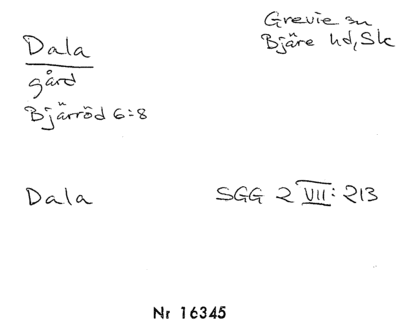 Dala
Grevie sn
Bjäre hd, Sk
gård
Bjärröd 6:8
Dala
SGG 2 VII: 213
Nr 16345